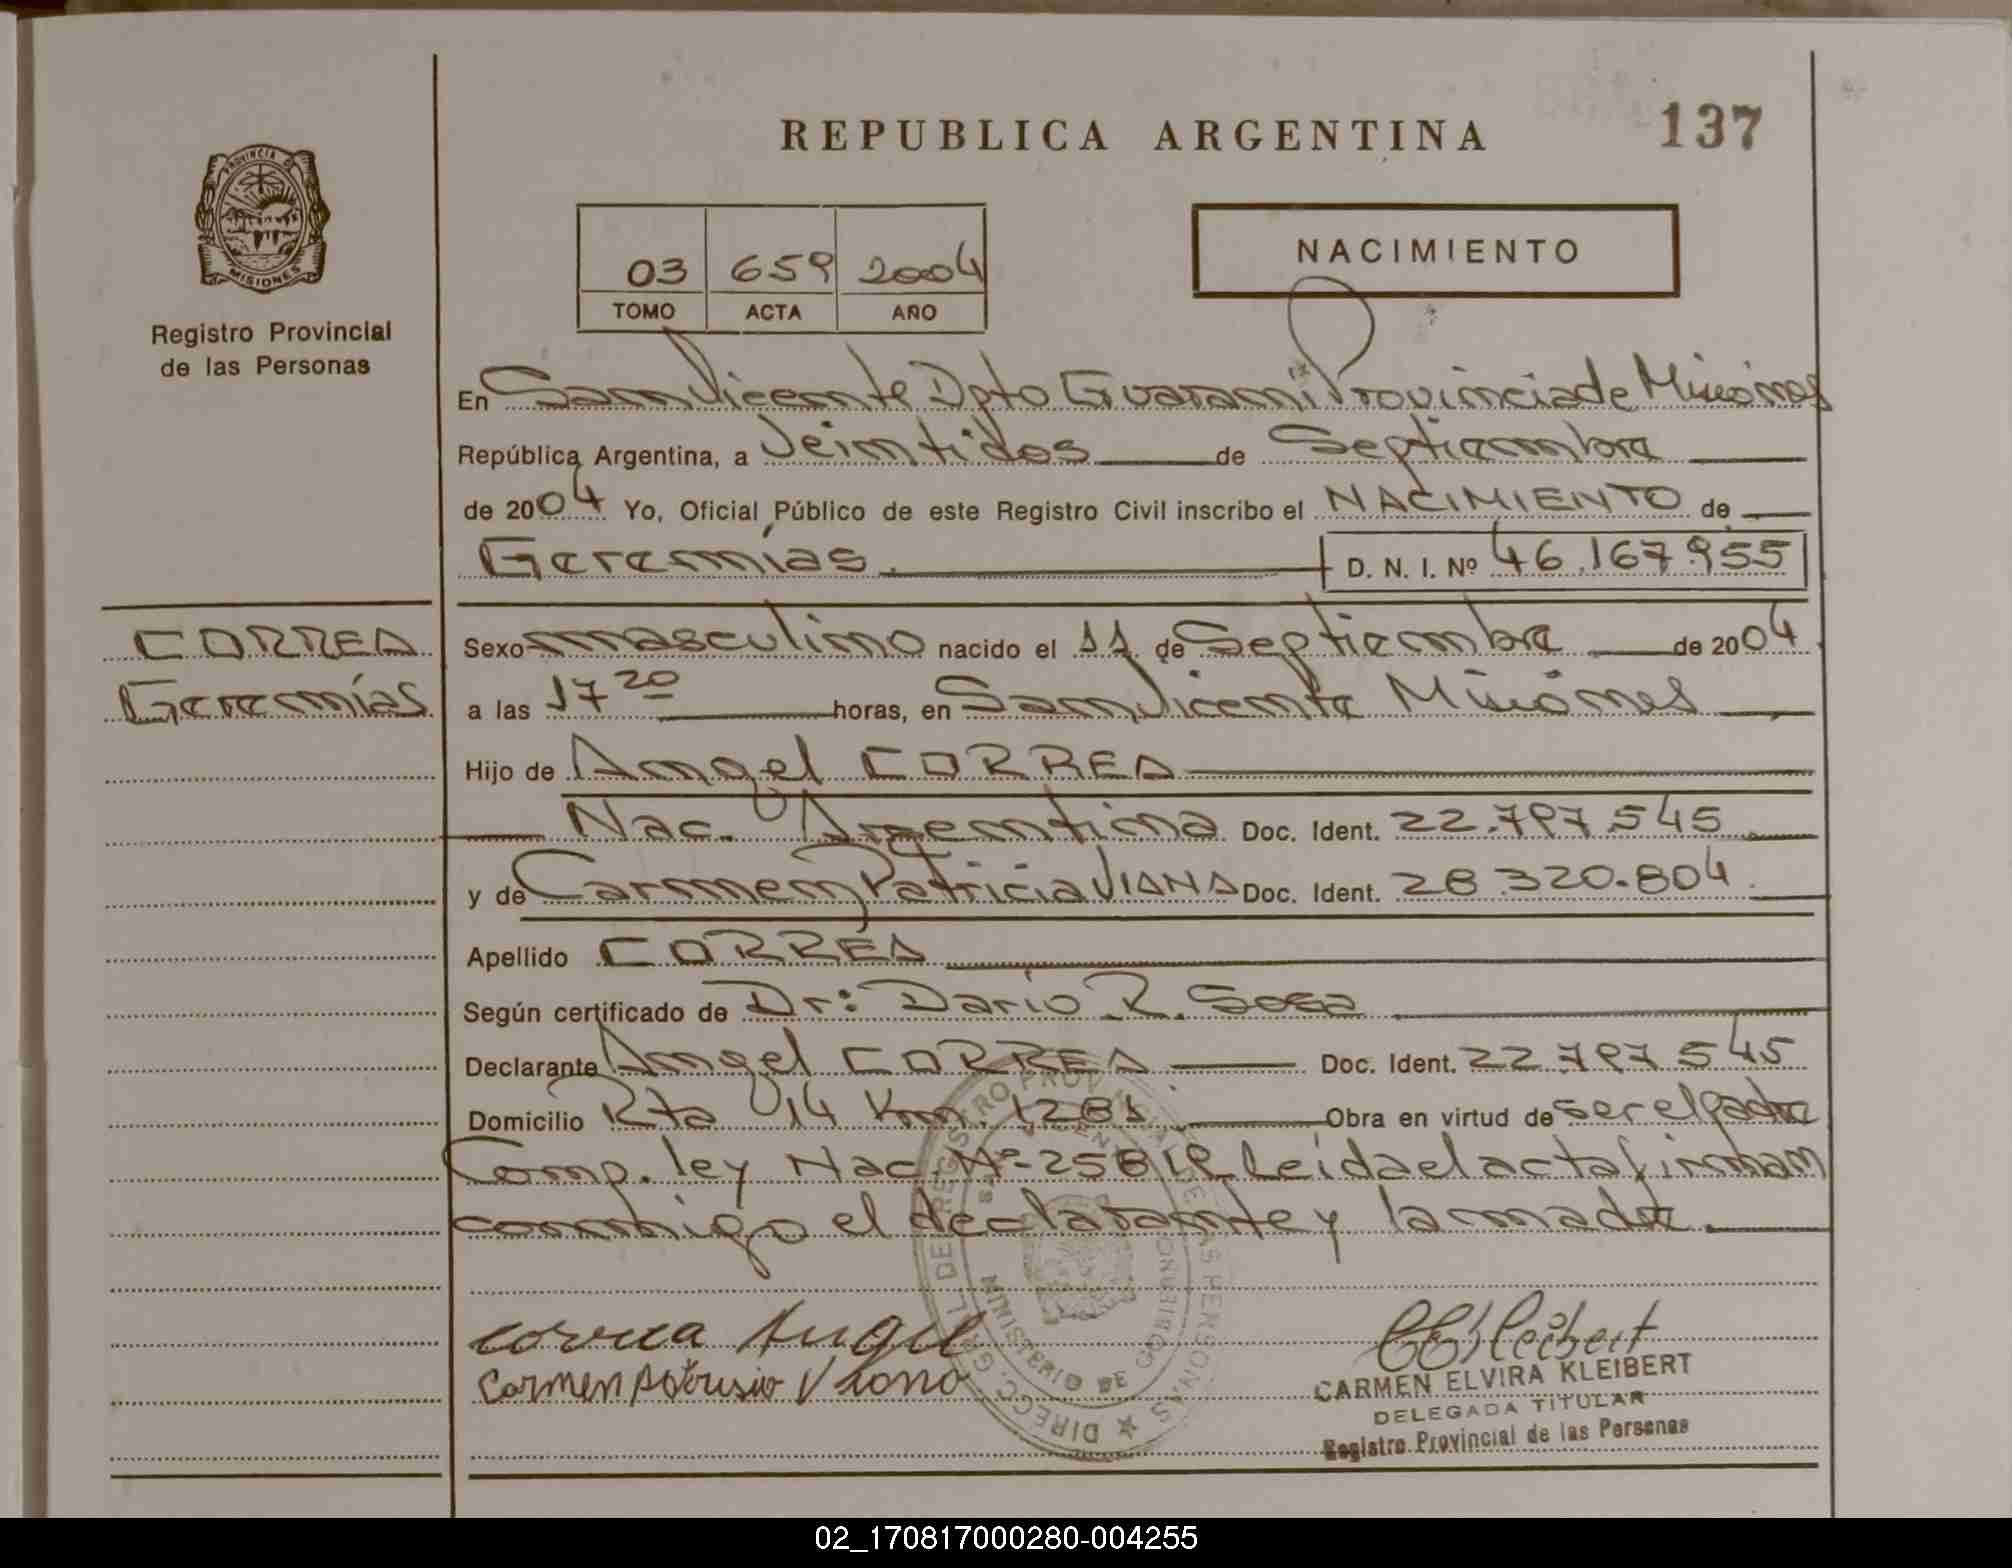 REPUBLICA ARGENTINA
137
PROVINCIA DE
MISIONES
Registro Provincial
de las Personas
03 659 2004
TOMO ACTA AÑO
NACIMIENTO
En San Vicente Dpto Guarani Provincia de Misiones
República Argentina, a Veintidos de Septiembre
de 2004 Yo, Oficial Público de este Registro Civil inscribo el NACIMIENTO de
Geremías D. N. I. Nº 46.167.955
CORREA
Geremías
Sexo masculino nacido el 11 de Septiembre de 2004
a las 17 20 horas, en San Vicente Misiones
Hijo de Angel CORREA
Nac. Argentina Doc. Ident. 22.797.545
y de Carmen Patricia VIANA Doc. Ident. 28.320.804
Apellido CORREA
Según certificado de Dr: Dario R. Sosa
Declarante Angel CORREA Doc. Ident. 22.797.545
Domicilio Rta 14 Km. 1281 Obra en virtud de ser el padre
Comp. ley Nac Nº 25819 Leida el acta firman
conmigo el declarante y la madre
DIRECC. GRAL DE REGISTRO PROVINCIAL DE LAS PERSONAS
MINISTERIO DE GOBIERNO
SAN VICENTE
Correa Angel
Carmen Viana
CKleibert
CARMEN ELVIRA KLEIBERT
DELEGADA TITULAR
Registro Provincial de las Personas
02_170817000280-004255